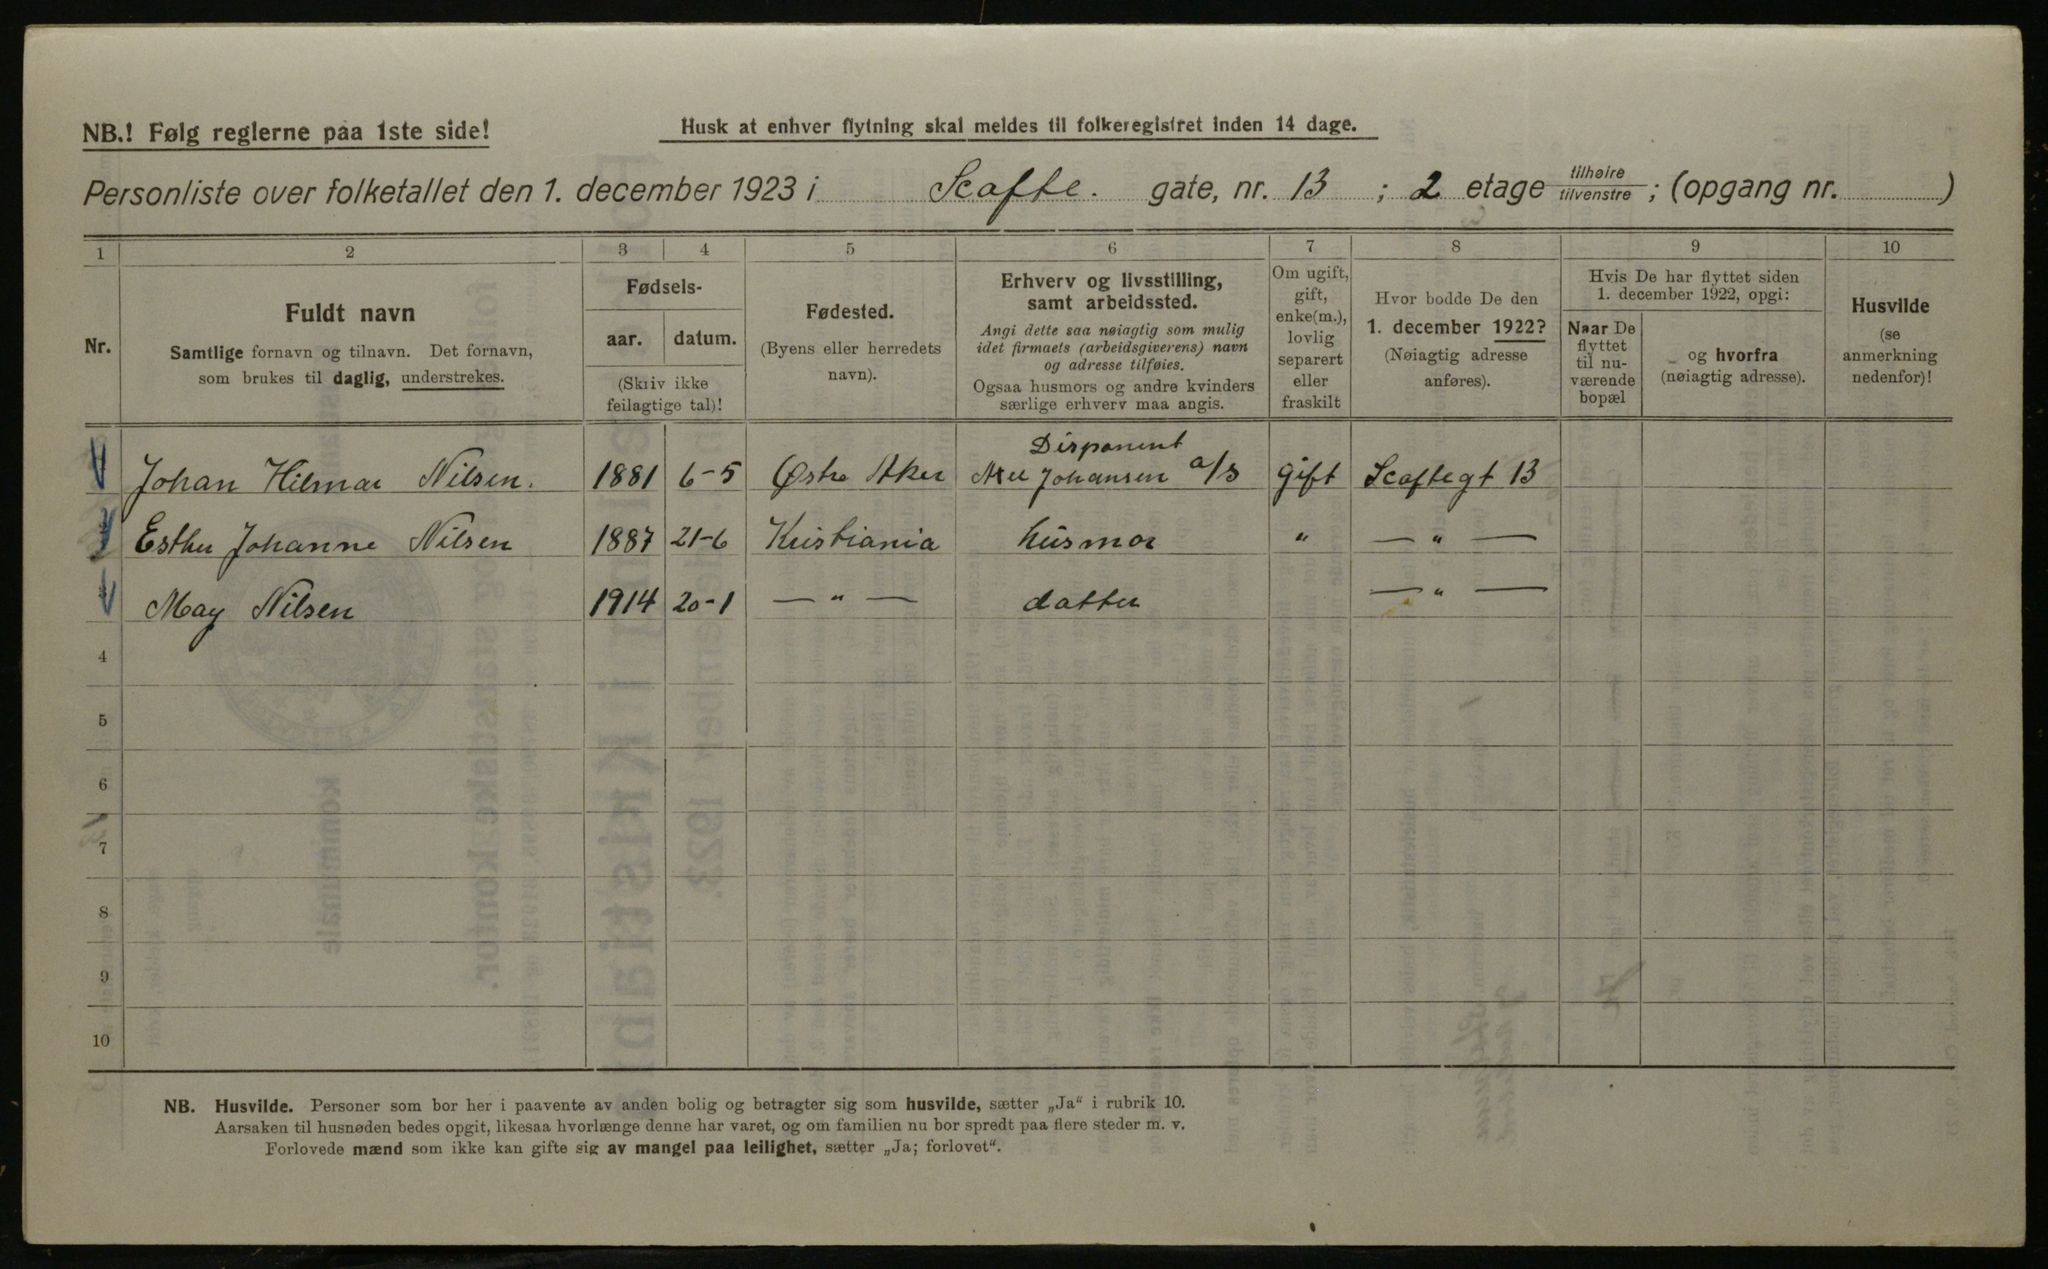 NB.! Følg reglerne paa 1ste side!
Husk at enhver flytning skal meldes til folkeregistret inden 14 dage.
Personliste over folketallet den 1. december 1923 i Scafte. gate, nr. 13 ; 2 etage tilhøire/tilvenstre ; (opgang nr. )
1 2 3 4 5 6 7 8 9 10
Nr.
Fuldt navn
Samtlige fornavn og tilnavn. Det fornavn,
som brukes til daglig, understrekes.
Fødsels-
aar. datum.
(Skriv ikke
feilagtige tal)!
Fødested.
(Byens eller herredets
navn).
Erhverv og livsstilling,
samt arbeidssted.
Angi dette saa nøiagtig som mulig
idet firmaets (arbeidsgiverens) navn
og adresse tilføies.
Ogsaa husmors og andre kvinders
særlige erhverv maa angis.
Om ugift,
gift,
enke(m.),
lovlig
separert
eller
fraskilt
Hvor bodde De den
1. december 1922?
(Nøiagtig adresse
anføres).
Hvis De har flyttet siden
1. december 1922, opgi:
Naar De
flyttet
til nu-
værende
bopæl
og hvorfra
(nøiagtig adresse).
Husvilde
(se
anmerkning
nedenfor)!
Disponent
Johan Hilmar Nilsen. 1881 6-5 Østre Aker Axel Johansen a/s gift Scaftegt 13
Esther Johanne Nilsen 1887 21-6 Kristiania husmor " — " —
May Nilsen 1914 20-1 — " — datter — " —
4
5
6
7
8
9
10
NB. Husvilde. Personer som bor her i paavente av anden bolig og betragter sig som husvilde, sætter „Ja“ i rubrik 10.
Aarsaken til husnøden bedes opgit, likesaa hvorlænge denne har varet, og om familien nu bor spredt paa flere steder m. v.
Forlovede mænd som ikke kan gifte sig av mangel paa leilighet, sætter „Ja; forlovet“.